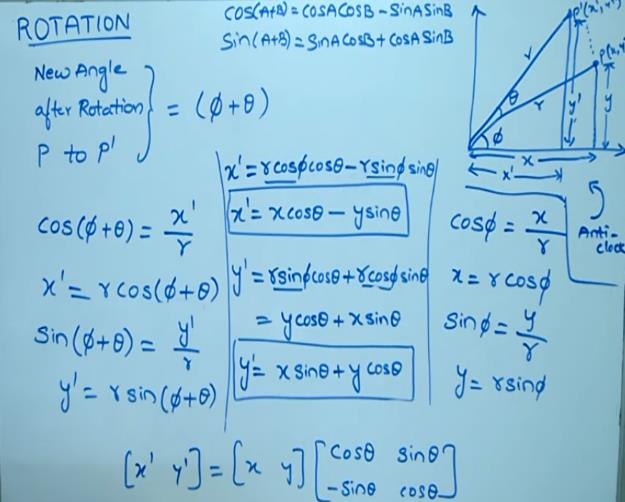 ROTATION
COS(A+B) = COSA COSB - SinA SinB
Sin(A+B) = SinA COSB + COSA SinB
New Angle
after Rotation
P to P'
= (φ+θ)
P'(x', y')
P(x, y
r
θ
r
φ
y'
y
x
x'
Anti-
clock
cos(φ+θ) = x'/r
x' = r cos(φ+θ)
Sin(φ+θ) = y'/r
y' = r sin(φ+θ)
x' = r cosφ cosθ - r sinφ sinθ
x' = x cosθ - y sinθ
y' = r sinφ cosθ + r cosφ sinθ
= y cosθ + x sinθ
y' = x sinθ + y cosθ
cosφ = x/r
x = r cosφ
Sinφ = y/r
y = r sinφ
[x' y'] = [x y] [cosθ sinθ
-sinθ cosθ]